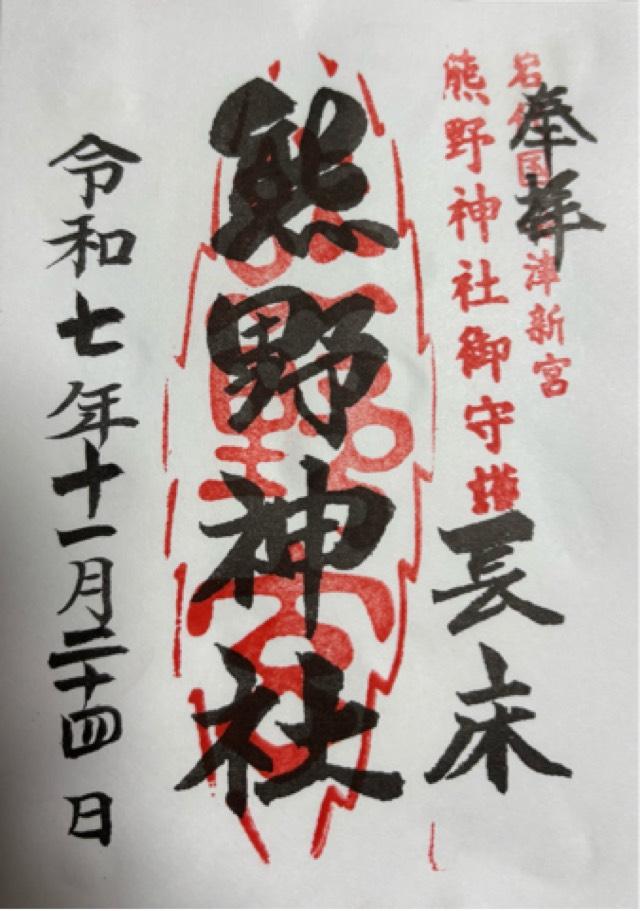 奉拝
長床
岩代国会津新宮
熊野神社御守護
熊野神社
令和七年十一月二十四日